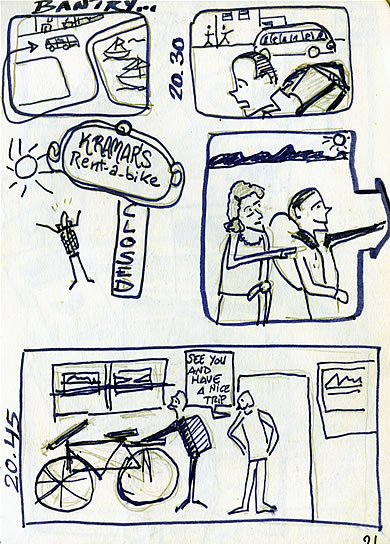 BANTRY...
20.30
KRAMAR'S
Rent-a-bike
CLOSED
SEE YOU
AND
HAVE
A NICE
TRIP
20.45
21